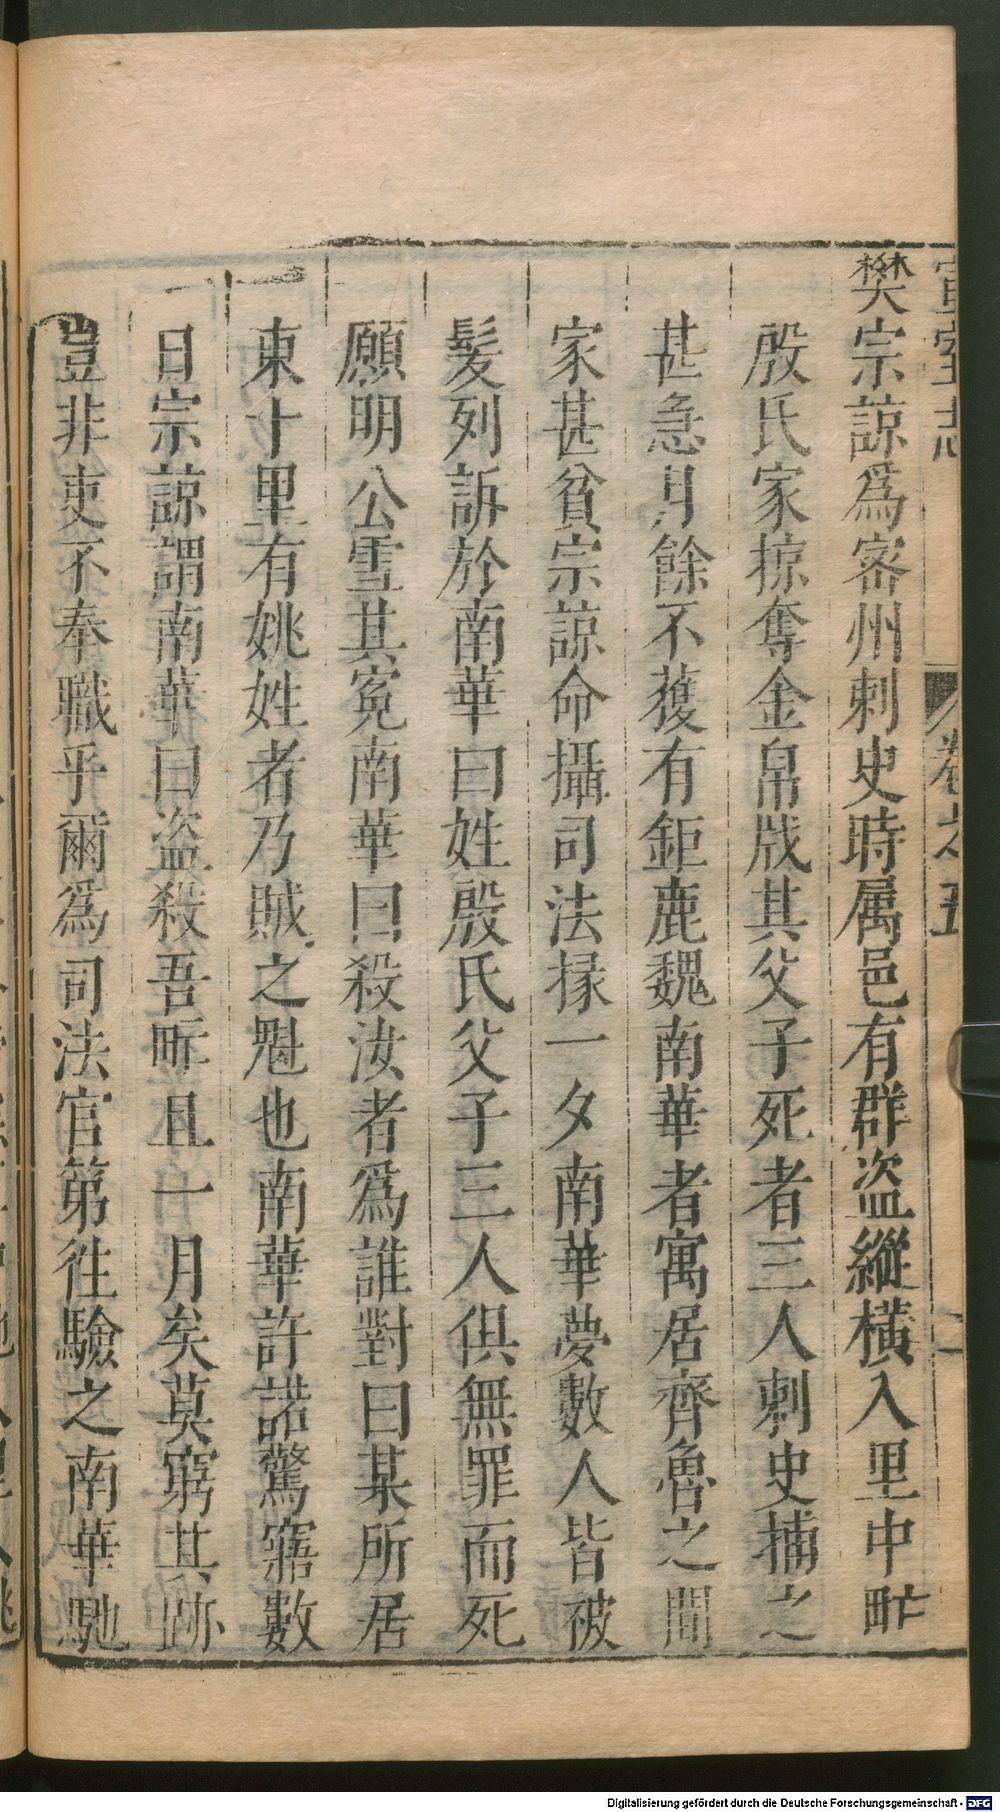 宣室志 卷之五
樊宗諒爲密州刺史時属邑有群盜縱橫入里中㽵
殷氏家掠奪金帛戕其父子死者三人刺史捕之
甚急月餘不獲有鉅鹿魏南華者寓居齊魯之間
家甚貧宗諒命攝司法掾一夕南華夢數人皆被
髮列訴於南華曰姓殷氏父子三人俱無罪而死
願明公雪其冤南華曰殺汝者爲誰對曰某所居
東十里有姚姓者乃賊之魁也南華許諾驚寤數
日宗諒謂南華曰盜殺吾㽵且一月矣莫窮其跡
豈非吏不奉職乎爾爲司法官第徃驗之南華馳
Digitalisierung gefördert durch die Deutsche Forschungsgemeinschaft - DFG